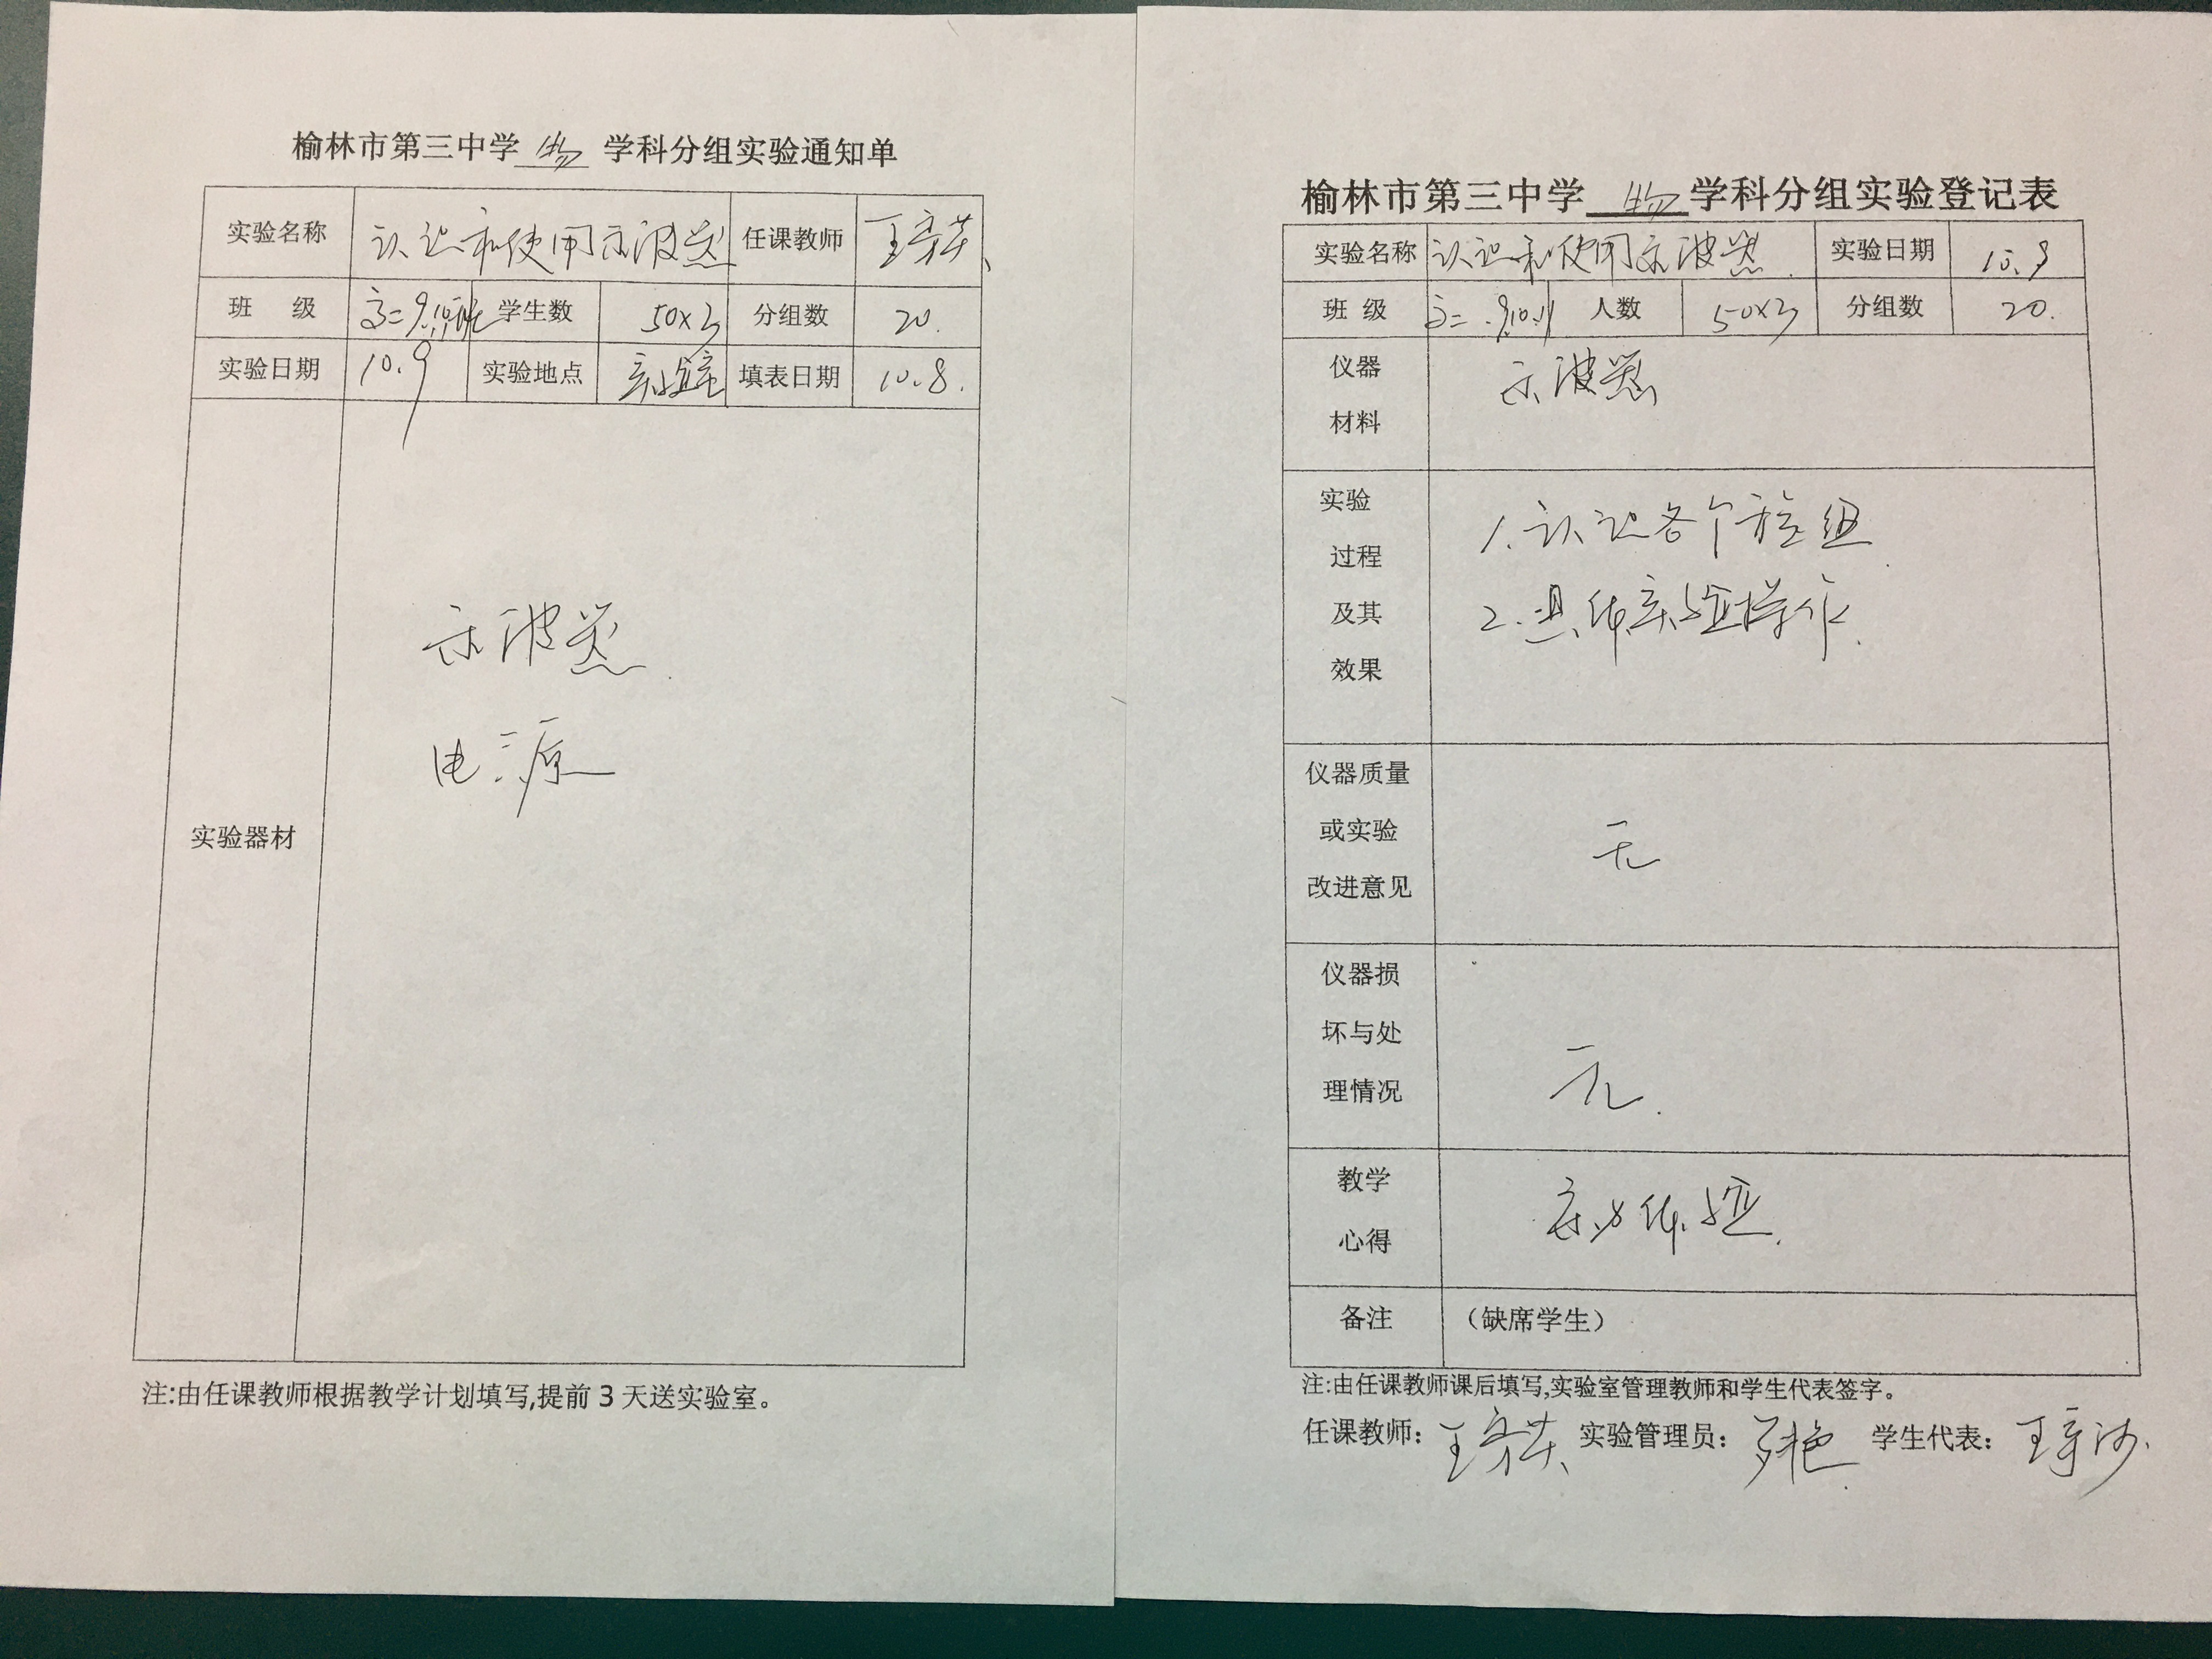 榆林市第三中学 物 学科分组实验通知单
实验名称 认识和使用示波器 任课教师
班 级 高二9.10.11班 学生数 50×3 分组数 20.
实验日期 10.9 实验地点 实验室 填表日期 10.8.
实验器材
示波器
电源
注:由任课教师根据教学计划填写,提前3天送实验室。
榆林市第三中学 物 学科分组实验登记表
实验名称 认识和使用示波器 实验日期 10.9
班 级 高二 9.10.11 人数 50×3 分组数 20.
仪器
材料
示波器
实验
过程
及其
效果
1.认识各个旋钮
2.具体实验操作.
仪器质量
或实验
改进意见
无
仪器损
坏与处
理情况
无.
教学
心得
实物体验.
备注 （缺席学生）
注:由任课教师课后填写,实验室管理教师和学生代表签字。
任课教师： 实验管理员： 学生代表：